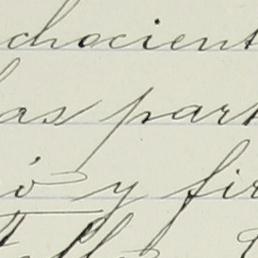 chocient
las part
ió y fir